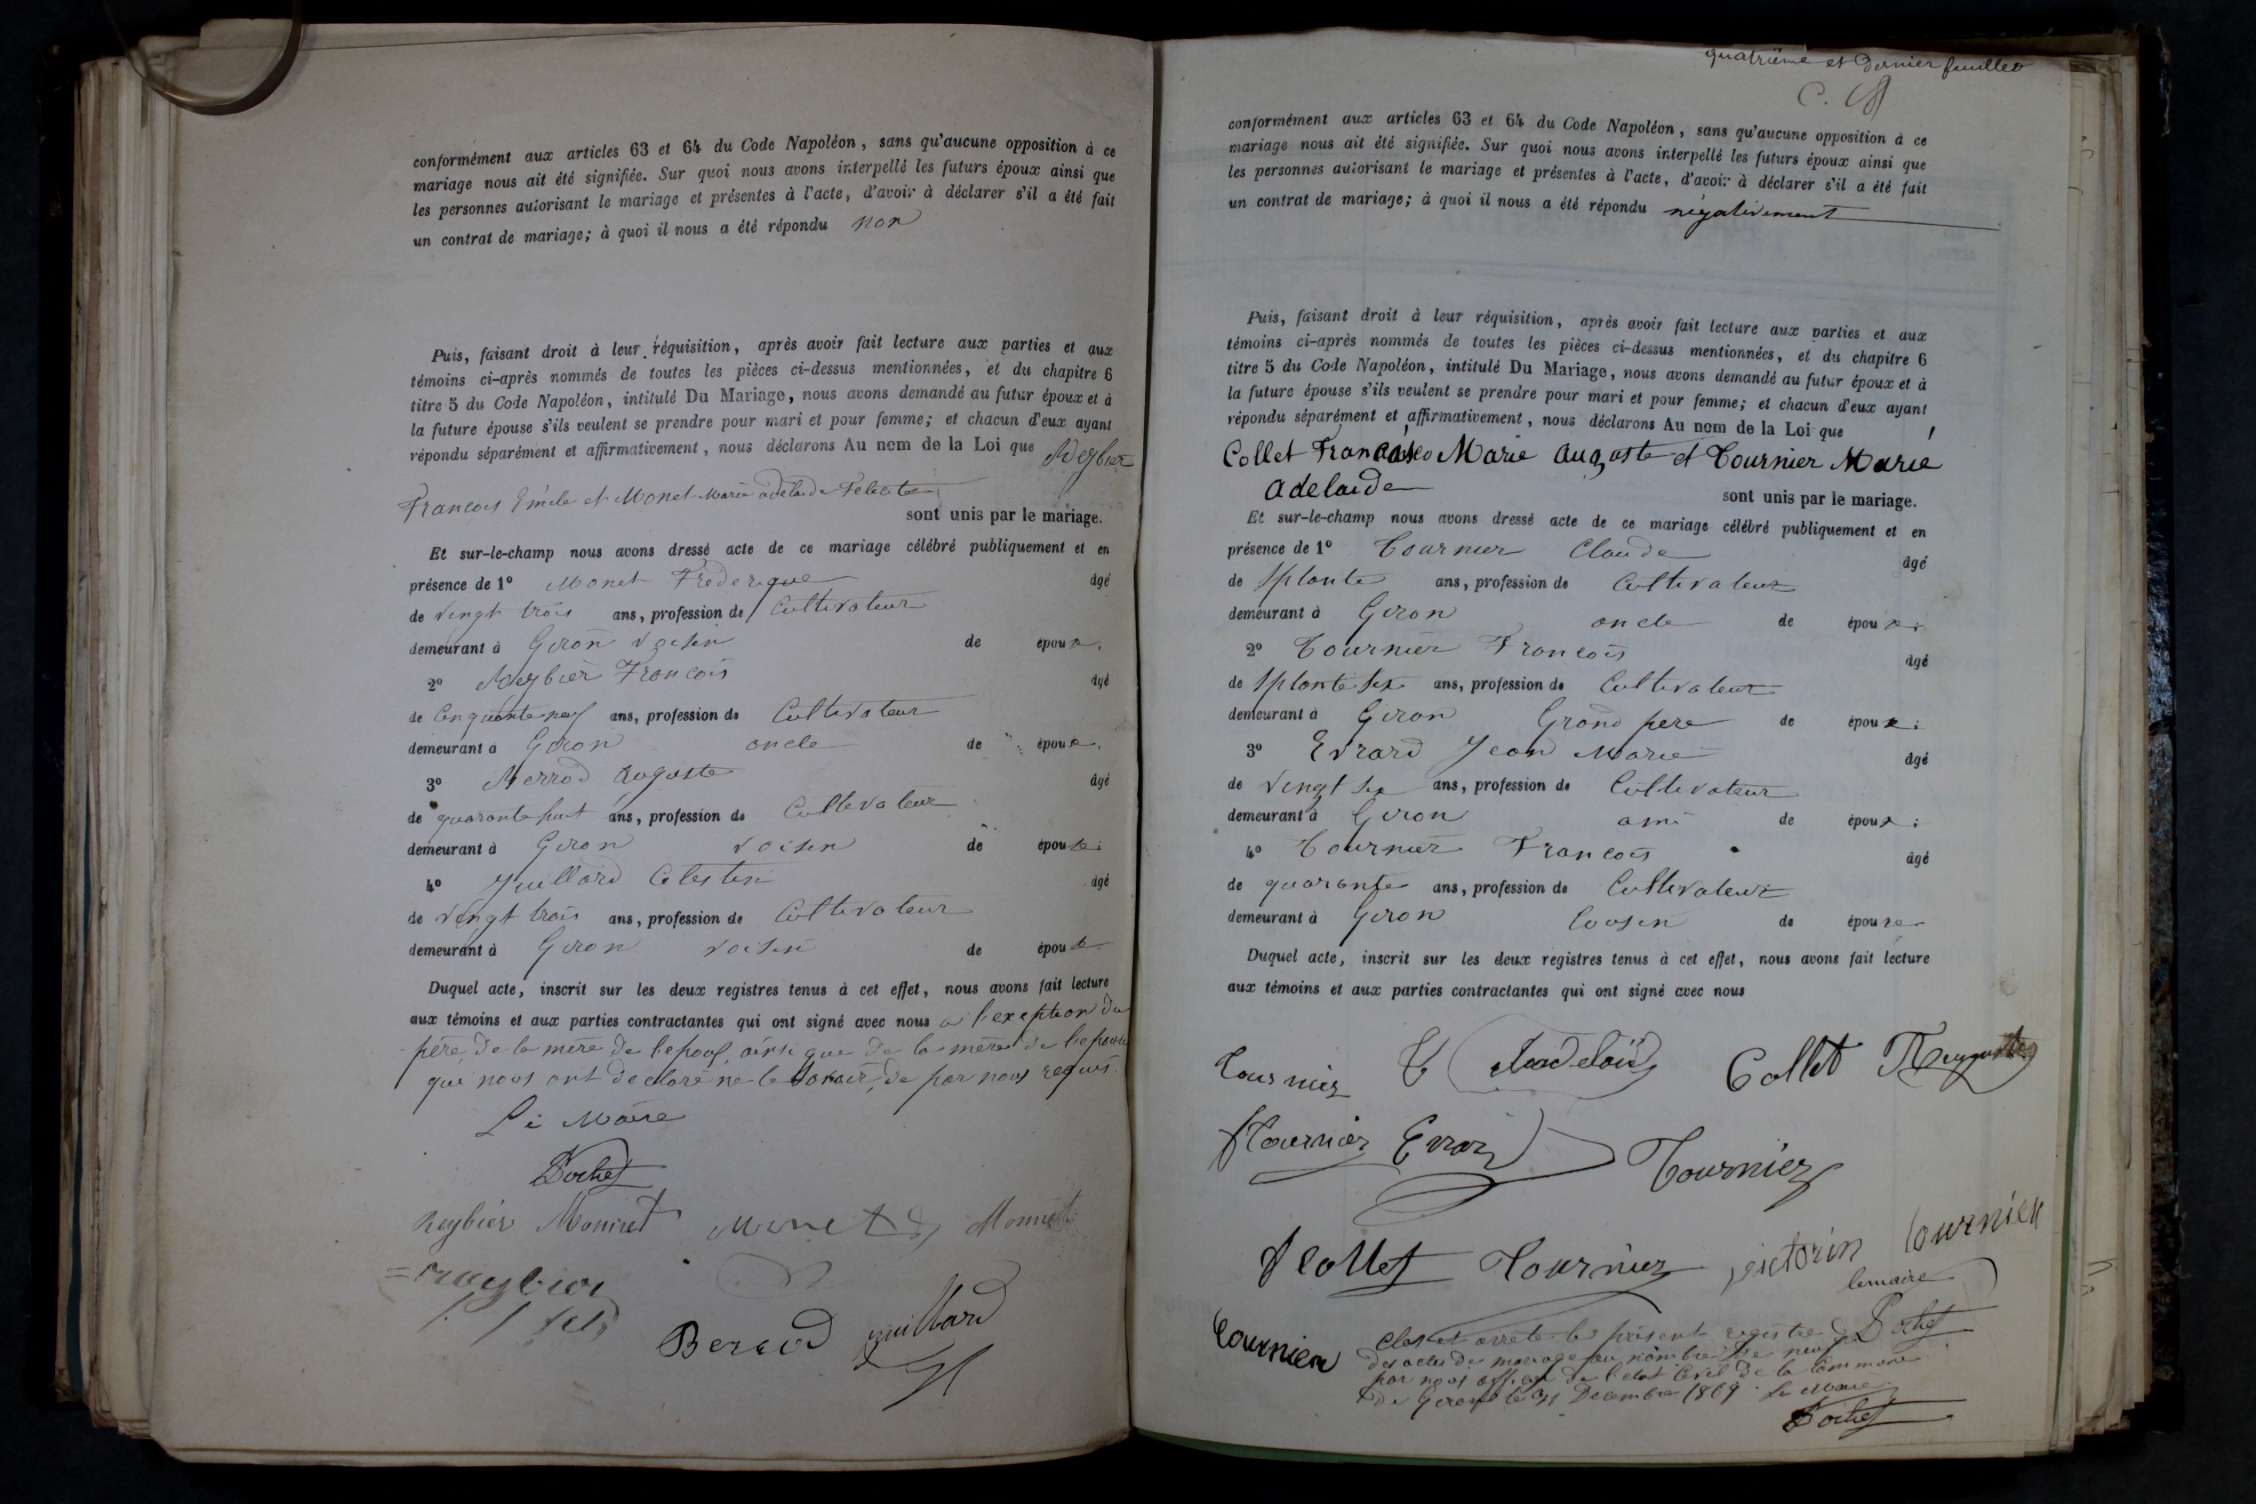 conformément aux articles 63 et 64 du Code Napoléon, sans qu'aucune opposition à ce
mariage nous ait été signifiée. Sur quoi nous avons interpellé les futurs époux ainsi que
les personnes autorisant le mariage et présentes à l'acte, d'avoir à déclarer s'il a été fait
un contrat de mariage; à quoi il nous a été répondu non
Puis, faisant droit à leur réquisition, après avoir fait lecture aux parties et aux
témoins ci-après nommés de toutes les pièces ci-dessus mentionnées, et du chapitre 6
titre 5 du Code Napoléon, intitulé Du Mariage, nous avons demandé au futur époux et à
la future épouse s'ils veulent se prendre pour mari et pour femme; et chacun d'eux ayant
répondu séparément et affirmativement, nous déclarons Au nom de la Loi que Reybier
Francois Emile et Monet Marie adelaide Felicite
sont unis par le mariage.
Et sur-le-champ nous avons dressé acte de ce mariage célébré publiquement et en
présence de 1º Monet Frederique âgé
de vingt trois ans, profession de Cultivateur
demeurant à Giron voisin de époux.
2º Reybier Francois âgé
de Cinquante neuf ans, profession de Cultivateur
demeurant à Giron oncle de époux.
3º Auguste âgé
de quarante huit ans, profession de Cultivateur
demeurant à Giron voisin de époux.
4º Juillard Celestin âgé
de vingt trois ans, profession de Cultivateur
demeurant à Giron voisin de époux
Duquel acte, inscrit sur les deux registres tenus à cet effet, nous avons fait lecture
aux témoins et aux parties contractantes qui ont signé avec nous a l'exeption du
père, de la mère de l'epoux, ainsi que de la mère de l'epouse
qui nous ont declaré ne le savoir, de par nous requis.
Le Maire
Rochet
Reybier Monnet Monet Monnet
Juillard
quatrième et dernier feuillet
conformément aux articles 63 et 64 du Code Napoléon, sans qu'aucune opposition à ce
mariage nous ait été signifiée. Sur quoi nous avons interpellé les futurs époux ainsi que
les personnes autorisant le mariage et présentes à l'acte, d'avoir à déclarer s'il a été fait
un contrat de mariage; à quoi il nous a été répondu négativement
Puis, faisant droit à leur réquisition, après avoir fait lecture aux parties et aux
témoins ci-après nommés de toutes les pièces ci-dessus mentionnées, et du chapitre 6
titre 5 du Code Napoléon, intitulé Du Mariage, nous avons demandé au futur époux et à
la future épouse s'ils veulent se prendre pour mari et pour femme; et chacun d'eux ayant
répondu séparément et affirmativement, nous déclarons Au nom de la Loi que
Collet Marie Auguste et Tournier Marie
Adelaide
sont unis par le mariage.
Et sur-le-champ nous avons dressé acte de ce mariage célébré publiquement et en
présence de 1º Tournier Claude âgé
de Sptante ans, profession de Cultivateur
demeurant à Giron oncle de époux.
2º Tournier Francois âgé
de Sptante six ans, profession de Cultivateur
demeurant à Giron Grand pere de époux.
3º Evrard Jean Marie âgé
de vingt six ans, profession de Cultivateur
demeurant à Giron ami de époux.
4º Tournier Francois âgé
de quarante ans, profession de Cultivateur
demeurant à Giron Cousin de épouse
Duquel acte, inscrit sur les deux registres tenus à cet effet, nous avons fait lecture
aux témoins et aux parties contractantes qui ont signé avec nous
Tournier Collet
Tournier Tournier
Collet Tournier victorin Tournier
le maire
Rochet
Tournier
Clos et arrêté le présent registre
des actes de mariage au nombre de neuf
par nous officier de l'etat Civil de la Commune
de Giron le 31 Decembre 1869. Le Maire
Rochet